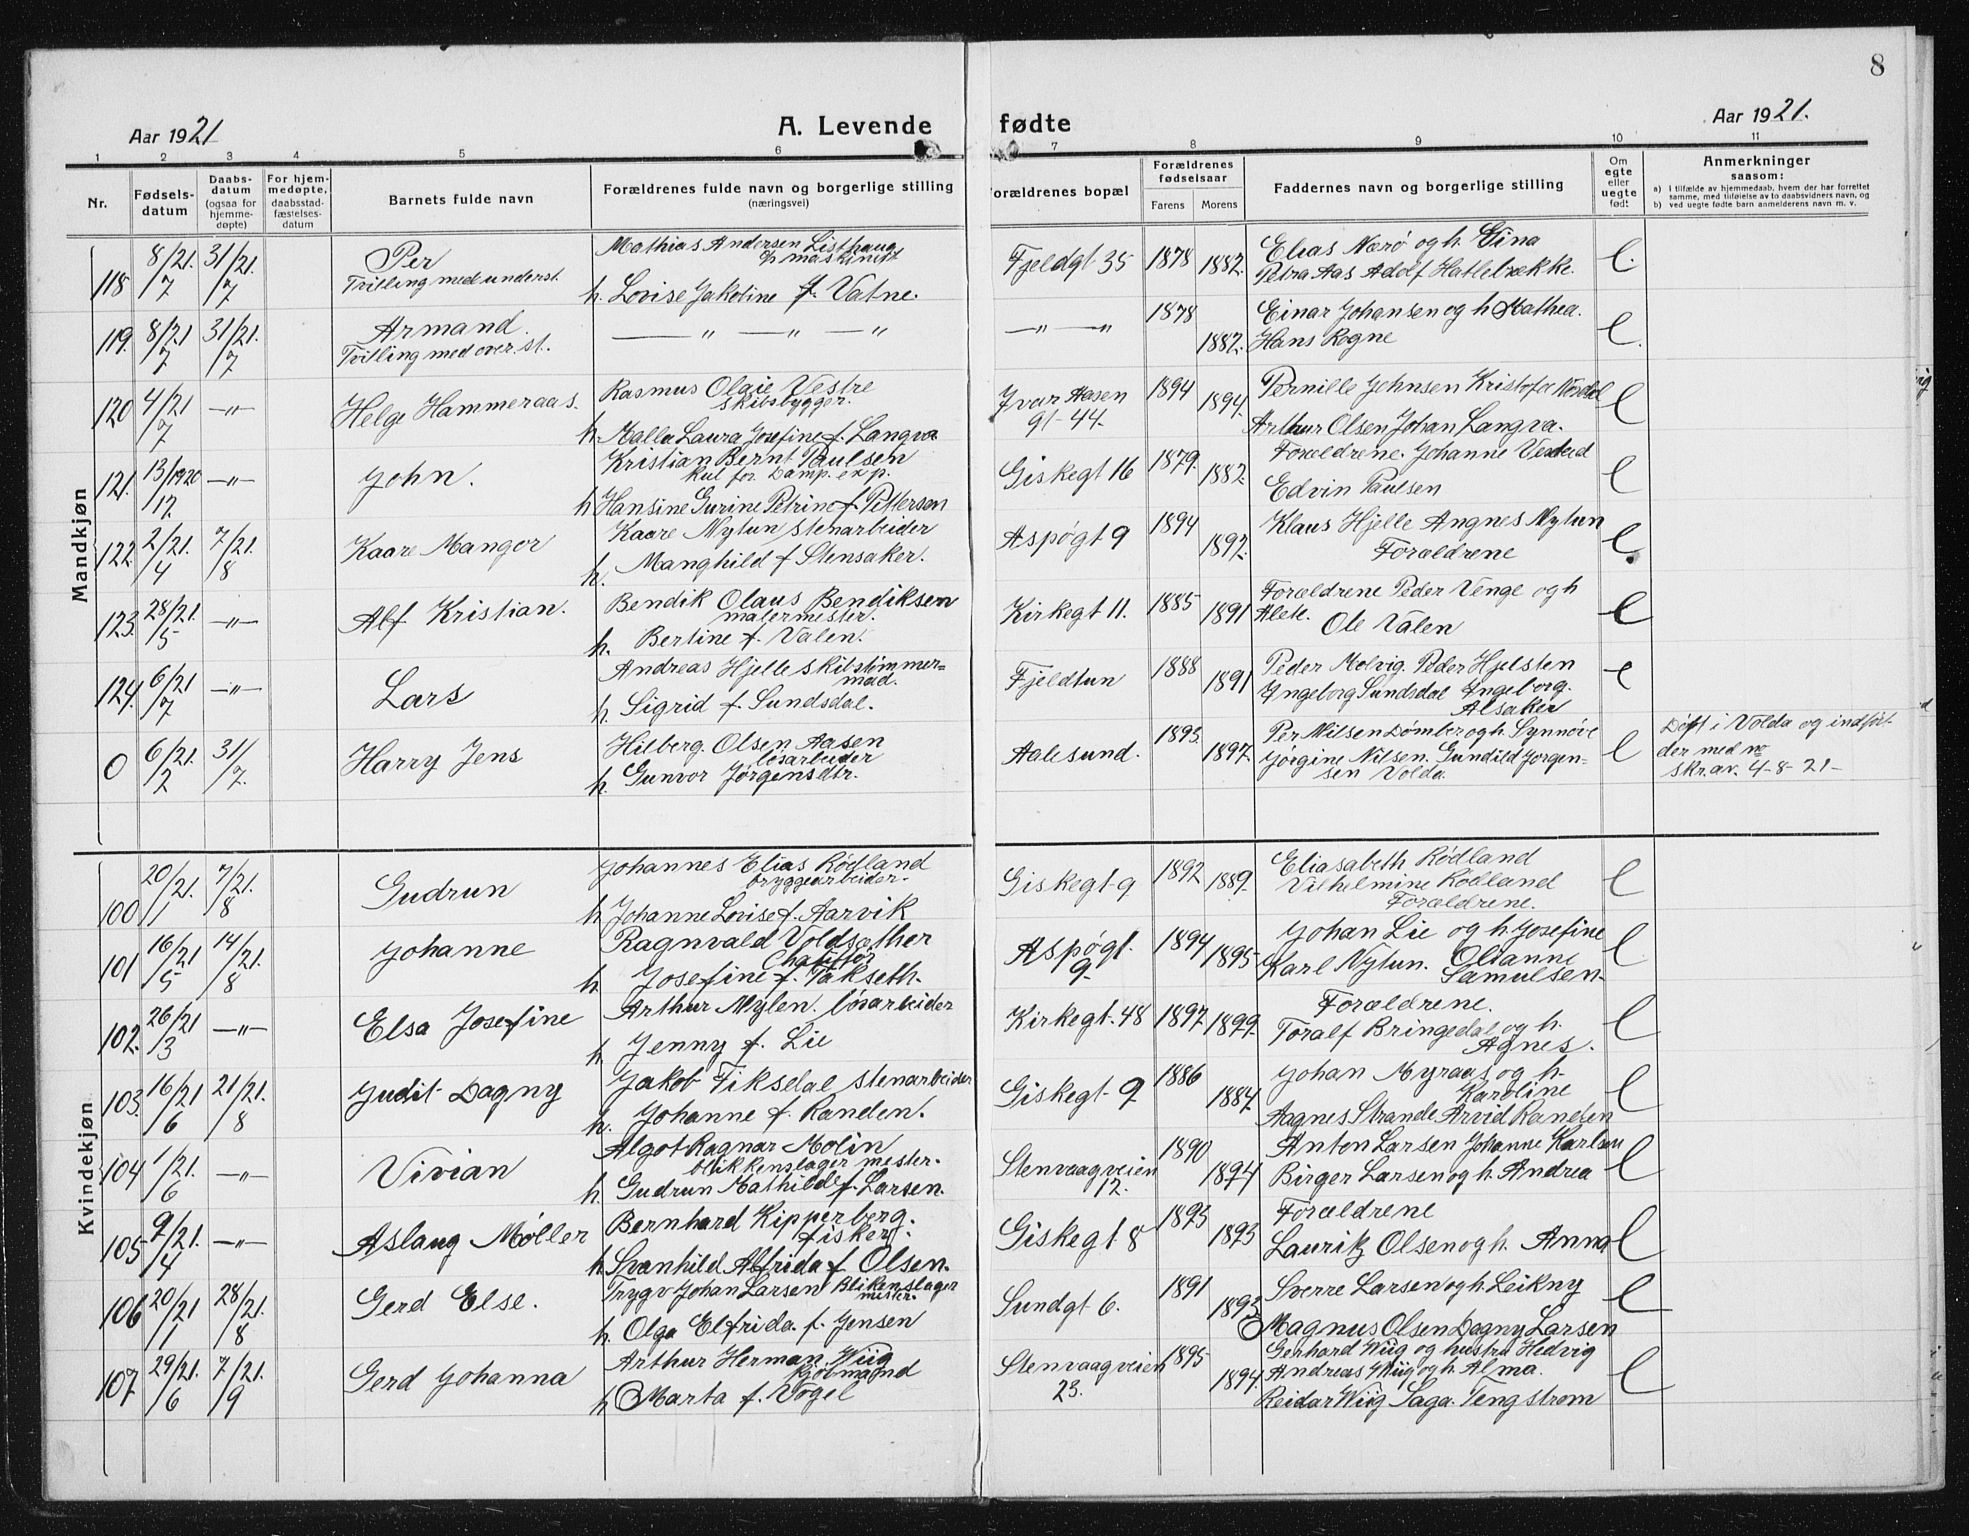 8
Aar 1921
A. Levende fødte
Aar 1921.
1 2 3 4 5 6 7 8 9 10 11
Nr.
Fødsels-
datum
Daabs-
datum
(ogsaa for
hjemme-
døpte)
For hjem-
medøpte,
daabsstad-
fæstelses-
datum
Barnets fulde navn
Forældrenes fulde navn og borgerlige stilling
(næringsvei)
Forældrenes bopæl
Forældrenes
fødselsaar
Farens Morens
Faddernes navn og borgerlige stilling
Om
egte
eller
uegte
født
Anmerkninger
saasom:
a) i tilfælde av hjemmedaab, hvem der har forrettet
samme, med tilføielse av to daabsvidners navn, og
b) ved uegte fødte barn anmelderens navn m. v.
Mandkjøn
118 8/21. 31/21. Per Mathias Andersen Listhaug Fjeldgt 35 1878 1882. Elias Nærø og h. Gina e.
7 7 Tvilling med underst. maskinist
h. Lovise Jakoline f. Vatne. Petra Aas Adolf Hatlebrække.
119. 8/21 31/21. Armand. — " — " — " — " — " 1878 1882. Einar Johansen og h Mathea. e.
7 7 Tvilling med over. st. Hans Rogne
120 4/21 —"— Helge Hammeraas. Rasmus Olaie Vestre Ivar Aasen 1894 1894. Pernille Johnsen Kristofer e
7 skibsbygger. gt- 44.
h. Malla Laura Josefine f. Langva Arthur Olsen Johan Langva.
121. 13/1920 —"— John. Kristian Bernt Paulsen Giskegt 16 1879. 1882. Forældrene. Johanne e
12. Kul for Damp. exp.
h Hansine Gurine Petrine f. Pettersen Edvin Paulsen
122. 2/21. 7/21. Kaare Mangor Kaare Nytun stenarbeider Aspøgt 9 1894 1892. Klaus Hjelle Angnes Nytun e.
4 8 h. Manghild f Stensaker. Forældrene
123. 28/21. —"— Alf Kristian. Bendik Olaus Bendiksen Kirkegt 11. 1885 1891 Forældrene Peder Venge og h e
5 malermester.
h. Bertine f. Valen. Alete. Ole Valen
124. 6/21 —"— Lars Andreas Hjelle skibstømmer= Fjeldtun 1888 1891 Peder Molvig. Peder Hjelsten e
7 mad.
h. Sigrid f. Sundsdal. Yngeborg Sundsdal Ingeborg.
Alsaker
0 6/21 31/ Harry Jens Hilberg. Olsen Aasen Aalesund. 1893. 1897. Per Nilsen Dømbe og h. Synnøve e Døpt i Volda og indført
2 7. løsarbeider
h. Gunvor Jørgensdtr. Jørgine Nilsen. Gundild Jorgen= der med no
sen Volda. skr. av. 4-8-21-
Kvindekjøn
100 20/21. 7/21. Gudrun Johannes Elias Rødland Giskegt 9 1892 1889. Eliasabeth Rødland e
1 8 bryggearbeider.
h Johanne Lovise f. Aarvik Vilhelmine Rødland
Forældrene.
101 16/21 14/21. Johanne Ragnvald Voldsæther Aspøgt. 1894 1895 Johan Lie og h. Josefine e
5 8 Chauffør 9.
h Josefine f. Takseth. Karl Nytun. Olianne
Samulsen.
102. 26/21 —"— Elsa Josefine Arthur Mylen. løsarbeider Kirkegt. 48 1897 1899. Forældrene. e
3 h Jenny f. Lie Toralf Bringedal og h.
Agnes.
103. 16/21 21/21. Judit Dagny Jakob Fiksdal stenarbeider Giskegt 9 1886 1884. Johan Myraas og h- e
6 8 h. Johanne f. Randen. Karoline
Aagnes Strande Arvid Randen
104 1/21. —"— Vivian Algot Ragnar Molin Stenvaagveien 1890 1894 Anton Larsen Johanne Karlsen e
6 blikkenslager mester. 12.
h. Gudrun Mathilde f. Larsen. Birger Larsen og h. Andrea
105 9/21. —"— Aslaug Møller Bernhard Kipperberg. Giskegt 8 1893 1893 Forældrene e
4 fisker.
h Svanhild Alfrida f Olsen. Lauritz Olsen og h. Anna
106 20/21 28/21. Gerd Else. Trygv Johan Larsen Blikenslager Sundgt 6. 1891 1893 Sverre Larsen og h. Leikny e
1 8 mester.
h. Olga Elfrida. f. Jensen Magnus Olsen Dagny Larsen
107. 29/21. 7/21. Gerd Johanna Arthur Herman Wiig Stenvaagveien 1895 1894. Gerhard Wiig og hustru Hedvig e
6 9 Kjøbmand 23. Andreas Wiig og h. Alma.
h Marta f. Vogel Reidar Wiig Saga. Tengstrom